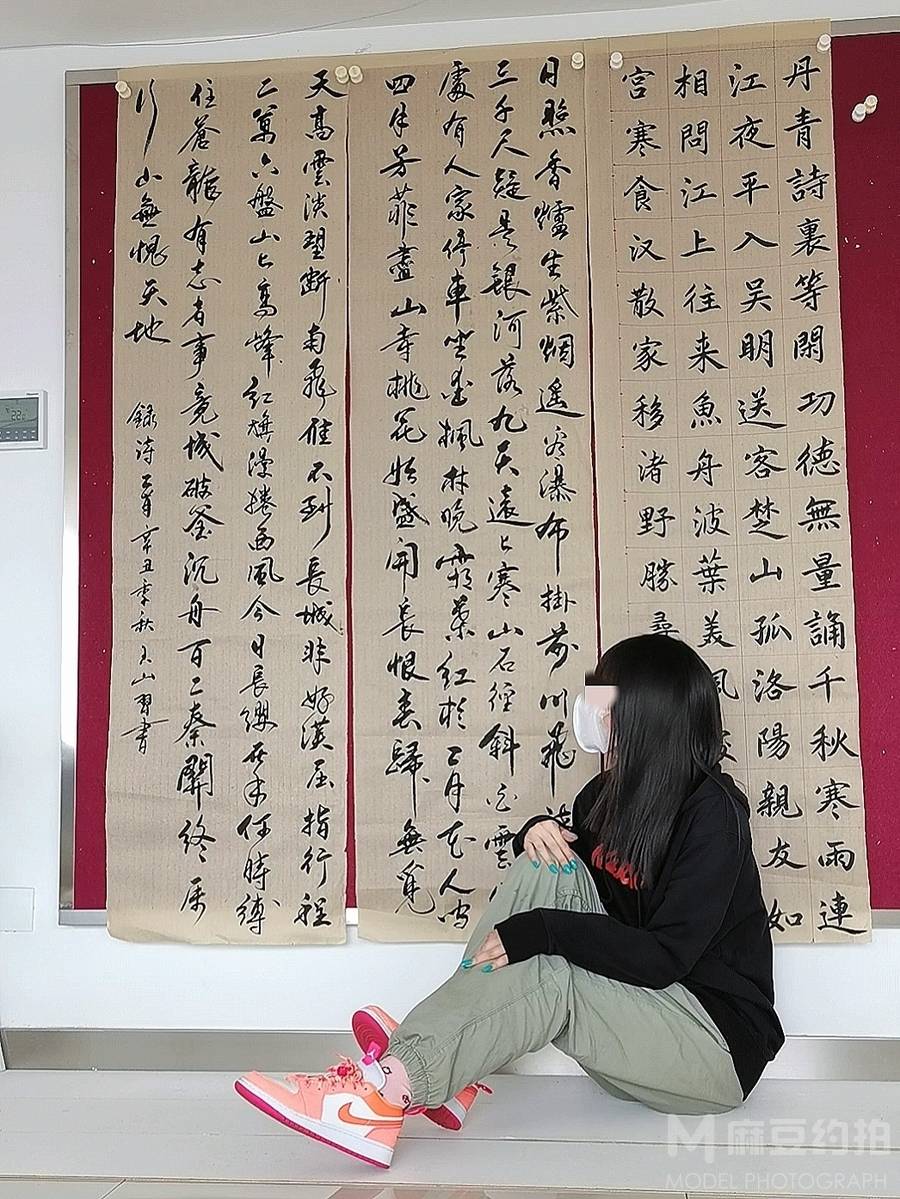 丹青詩裏等閑功德無量誦千秋寒雨連
江夜平入吴明送客楚山孤洛陽親友如
相問江上往来魚舟波葉美風
宫寒食汉散家移渚野勝尋
日照香爐生紫烟遥看瀑布掛前川飛流
三千尺疑是銀河落九天遠上寒山石徑斜白雲
處有人家停車坐爱楓林晚霜葉红於二月花人间
四月芳菲盡山寺桃花始盛開長恨春歸無覓
天高雲淡望断南飛雁不到長城非好漢屈指行程
二萬六盤山上高峰红旗漫捲西風今日長缨在手何時縛
住蒼龍有志者事竟成破釜沉舟百二秦關终属
行山無愧天地
録诗首辛丑季秋大山習書
麻豆约拍
MODEL PHOTOGRAPH